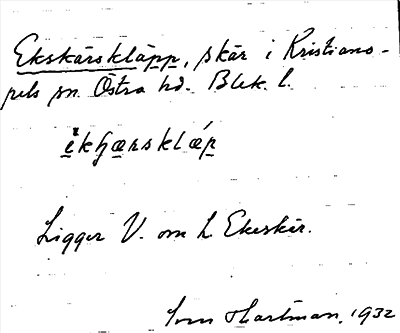 Ekskärskläpp, skär i Kristiano-
pels sn. Östra hd. Blek. l.
ekʒærsklæp
Ligger V. om L. Ekeskär.
Sven Hartman, 1932